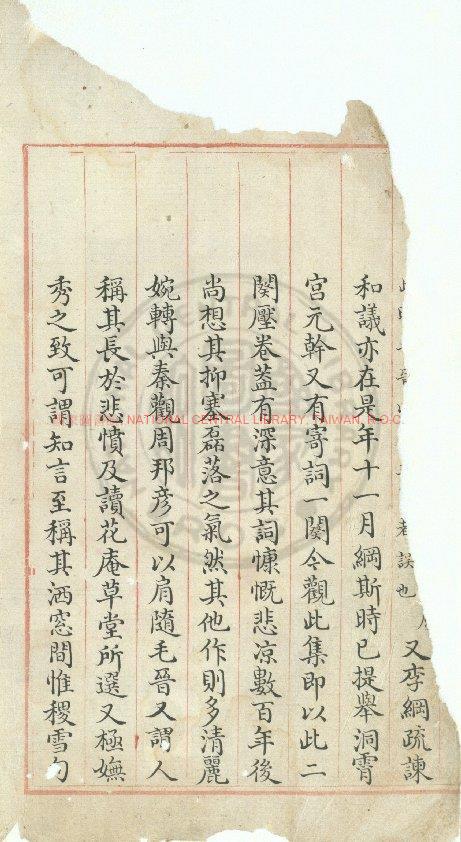 又李綱疏諫
和議亦在是年十一月綱斯時已提舉洞霄
宮元幹又有寄詞一闋今觀此集即以此二
闋壓卷葢有深意其詞慷慨悲凉數百年後
尚想其抑塞磊落之氣然其他作則多清麗
婉轉與秦觀周邦彦可以肩隨毛晉又謂人
稱其長於悲憤及讀花庵草堂所選又極嫵
秀之致可謂知言至稱其洒窓間惟稷雪句
NATIONAL CENTRAL LIBRARY, TAIWAN, R.O.C.